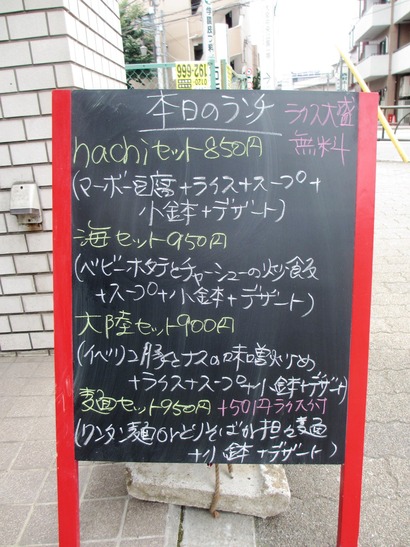 本日のランチ
ライス大盛
無料
hachiセット850円
(マーボー豆腐+ライス+スープ+
小鉢+デザート)
海セット950円
(ベビーホタテとチャーシューの炒飯
+スープ+小鉢+デザート)
大陸セット900円
(イベリコ豚とナスの味噌炒め
+ライス+スープ+小鉢+デザート)
麺セット950円 +50円ライス付
(ワンタン麺orとりそばか担々麺
+小鉢+デザート)